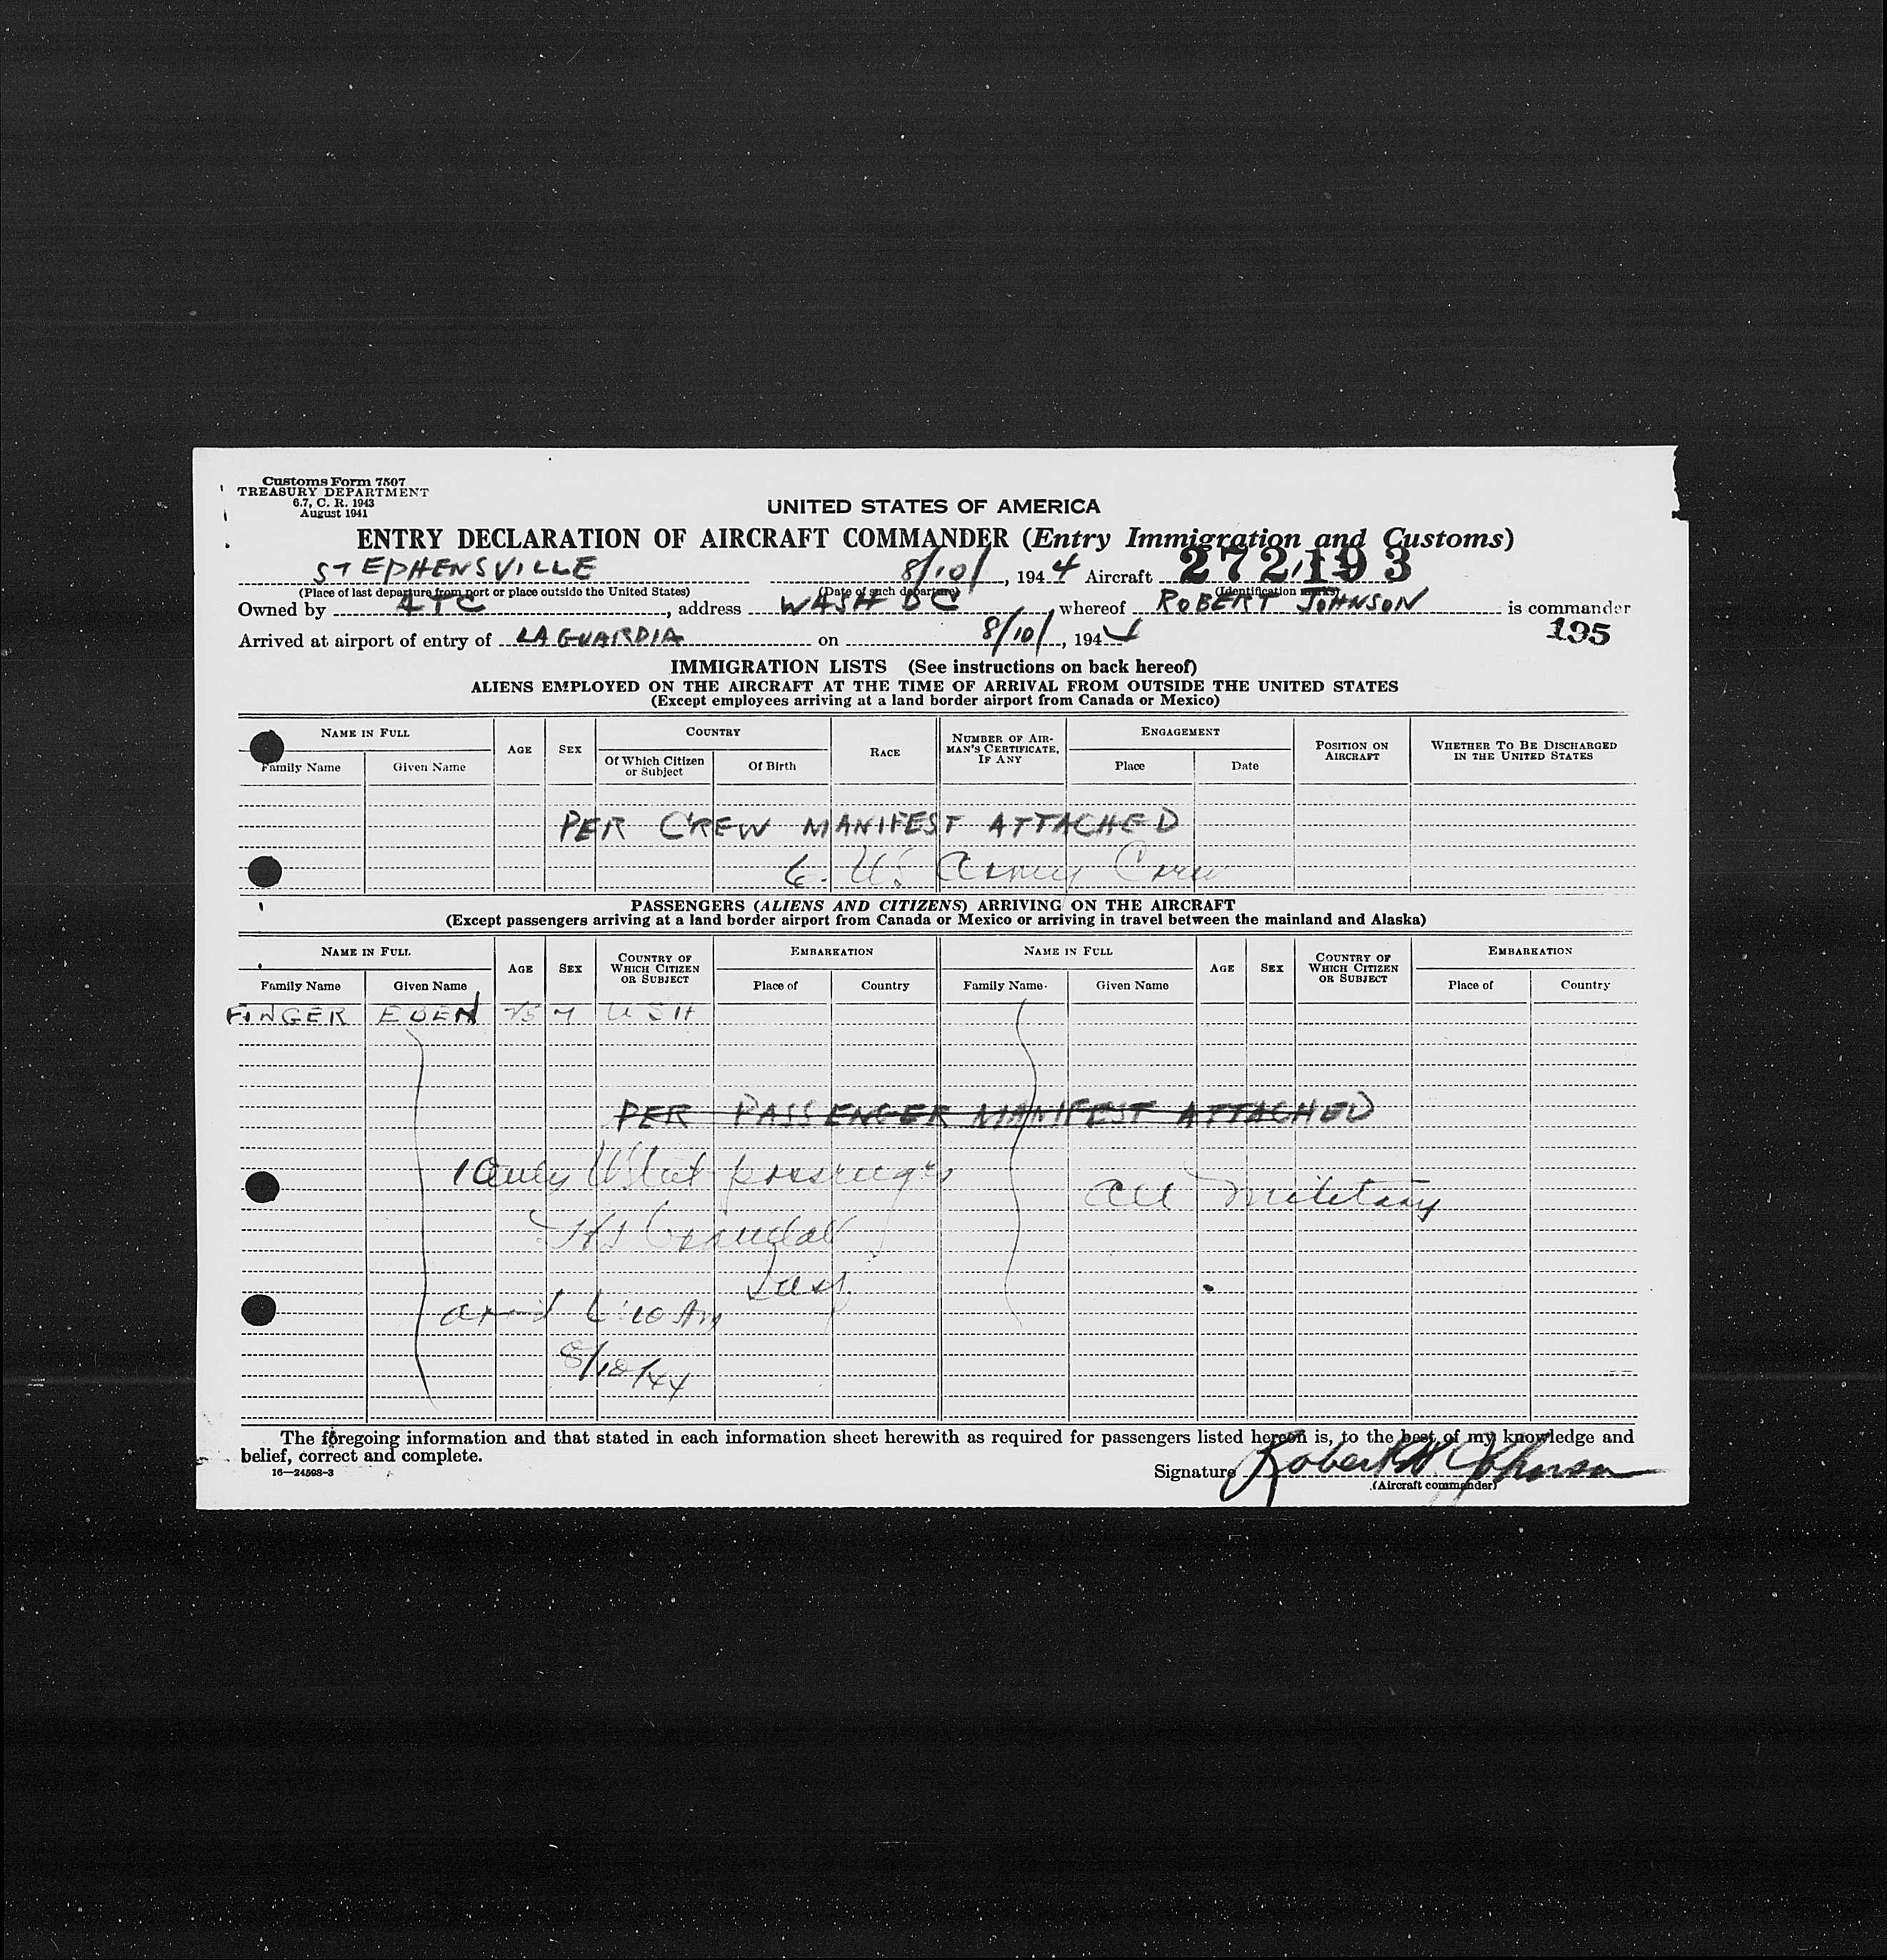 Customs Form 7507
TREASURY DEPARTMENT
6.7, C. R. 1943
August 1941
UNITED STATES OF AMERICA
ENTRY DECLARATION OF AIRCRAFT COMMANDER (Entry Immigration and Customs)
STEPHENSVILLE 8/10/, 1944 Aircraft 272,193
(Place of last departure from port or place outside the United States) (Date of such departure) (Identification marks)
Owned by ATC, address WASH DC, whereof ROBERT JOHNSON is commander
Arrived at airport of entry of LA GUARDIA on 8/10/, 1944
195
IMMIGRATION LISTS (See instructions on back hereof)
ALIENS EMPLOYED ON THE AIRCRAFT AT THE TIME OF ARRIVAL FROM OUTSIDE THE UNITED STATES
(Except employees arriving at a land border airport from Canada or Mexico)
NAME IN FULL AGE SEX COUNTRY RACE NUMBER OF AIRMAN'S CERTIFICATE, IF ANY ENGAGEMENT POSITION ON AIRCRAFT WHETHER TO BE DISCHARGED IN THE UNITED STATES
Family Name Given Name Of Which Citizen or Subject Of Birth Place Date
PER CREW MANIFEST ATTACHED
6. US Army Crew
PASSENGERS (ALIENS AND CITIZENS) ARRIVING ON THE AIRCRAFT
(Except passengers arriving at a land border airport from Canada or Mexico or arriving in travel between the mainland and Alaska)
NAME IN FULL AGE SEX COUNTRY OF WHICH CITIZEN OR SUBJECT EMBARKATION NAME IN FULL AGE SEX COUNTRY OF WHICH CITIZEN OR SUBJECT EMBARKATION
Family Name Given Name Place of Country Family Name Given Name Place of Country
FINGER EDEN M USA
PER PASSENGER MANIFEST ATTACHED
1 only passenger
All Military
Crandall
arr'd 6:10 Am
8/10/44
The foregoing information and that stated in each information sheet herewith as required for passengers listed hereon is, to the best of my knowledge and
belief, correct and complete.
16—24598-3
Signature Robert W Johnson
(Aircraft commander)